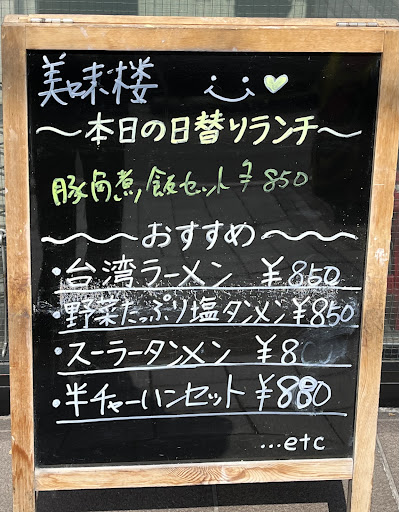 美味楼
～本日の日替りランチ～
豚角煮飯セット ¥850
～おすすめ～
・台湾ラーメン ¥850
・野菜たっぷり塩タンメン ¥850
・スーラータンメン ¥8
・半チャーハンセット ¥880
...etc